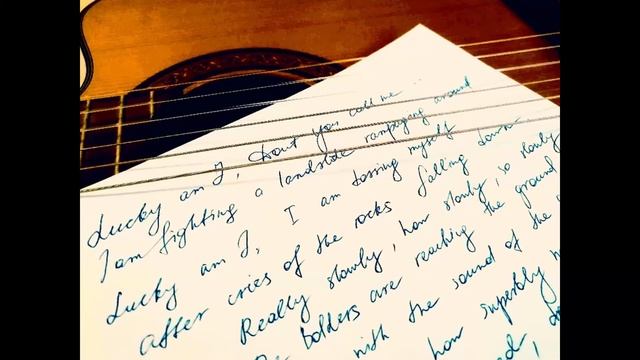 Lucky am I, Dont you call me ..
I am fighting a landslide rampaging around
Lucky am I, I am tossing myself
After cries of the rocks falling down
Really slowly, how slowly, so slowly
bolders are reaching the ground
with the sound of the
how superbly